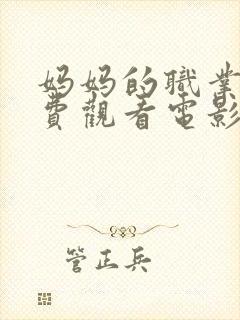 妈妈的職業
費觀看電影
管正兵